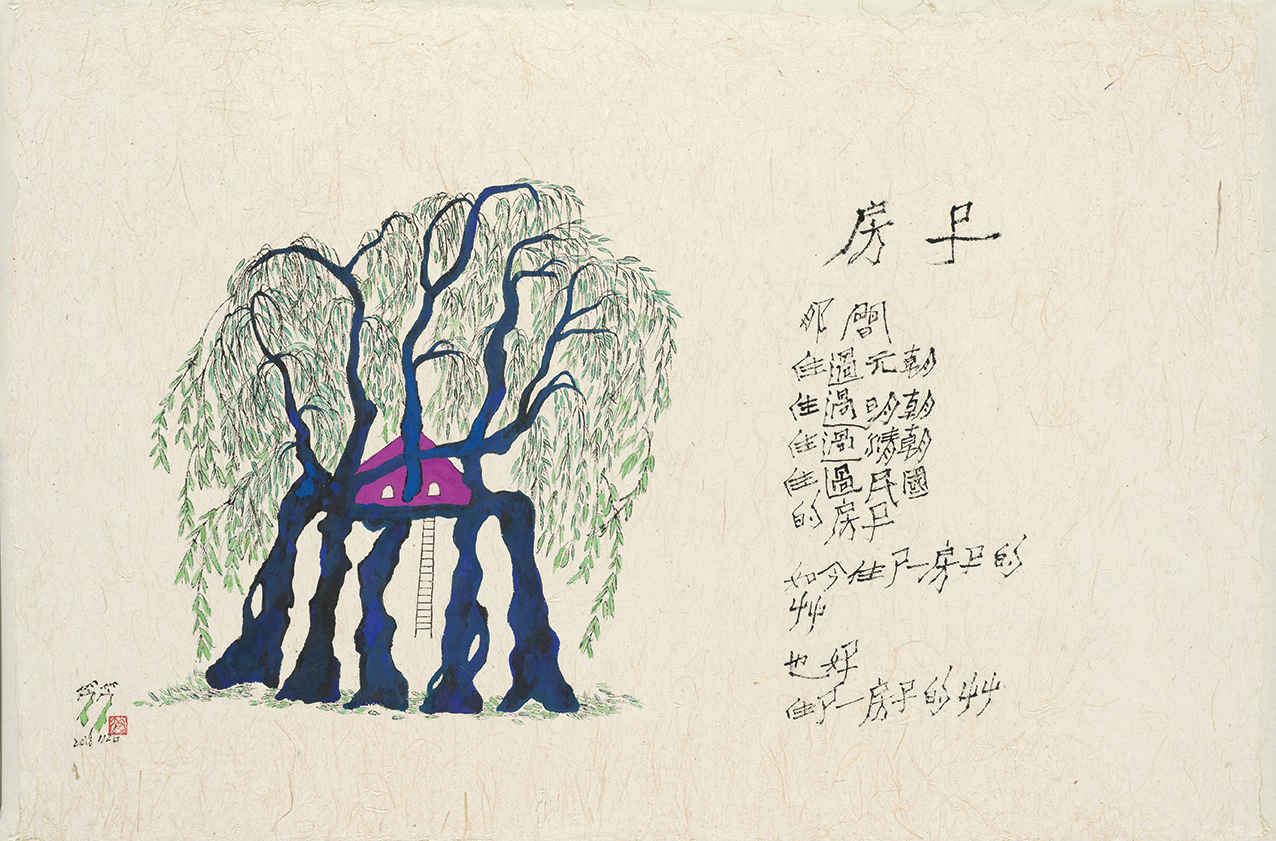 房子
那間
住過元朝
住過明朝
住過清朝
住過民國
的房子
如今住一房子的
艸
也好
住一房子的艸
2018